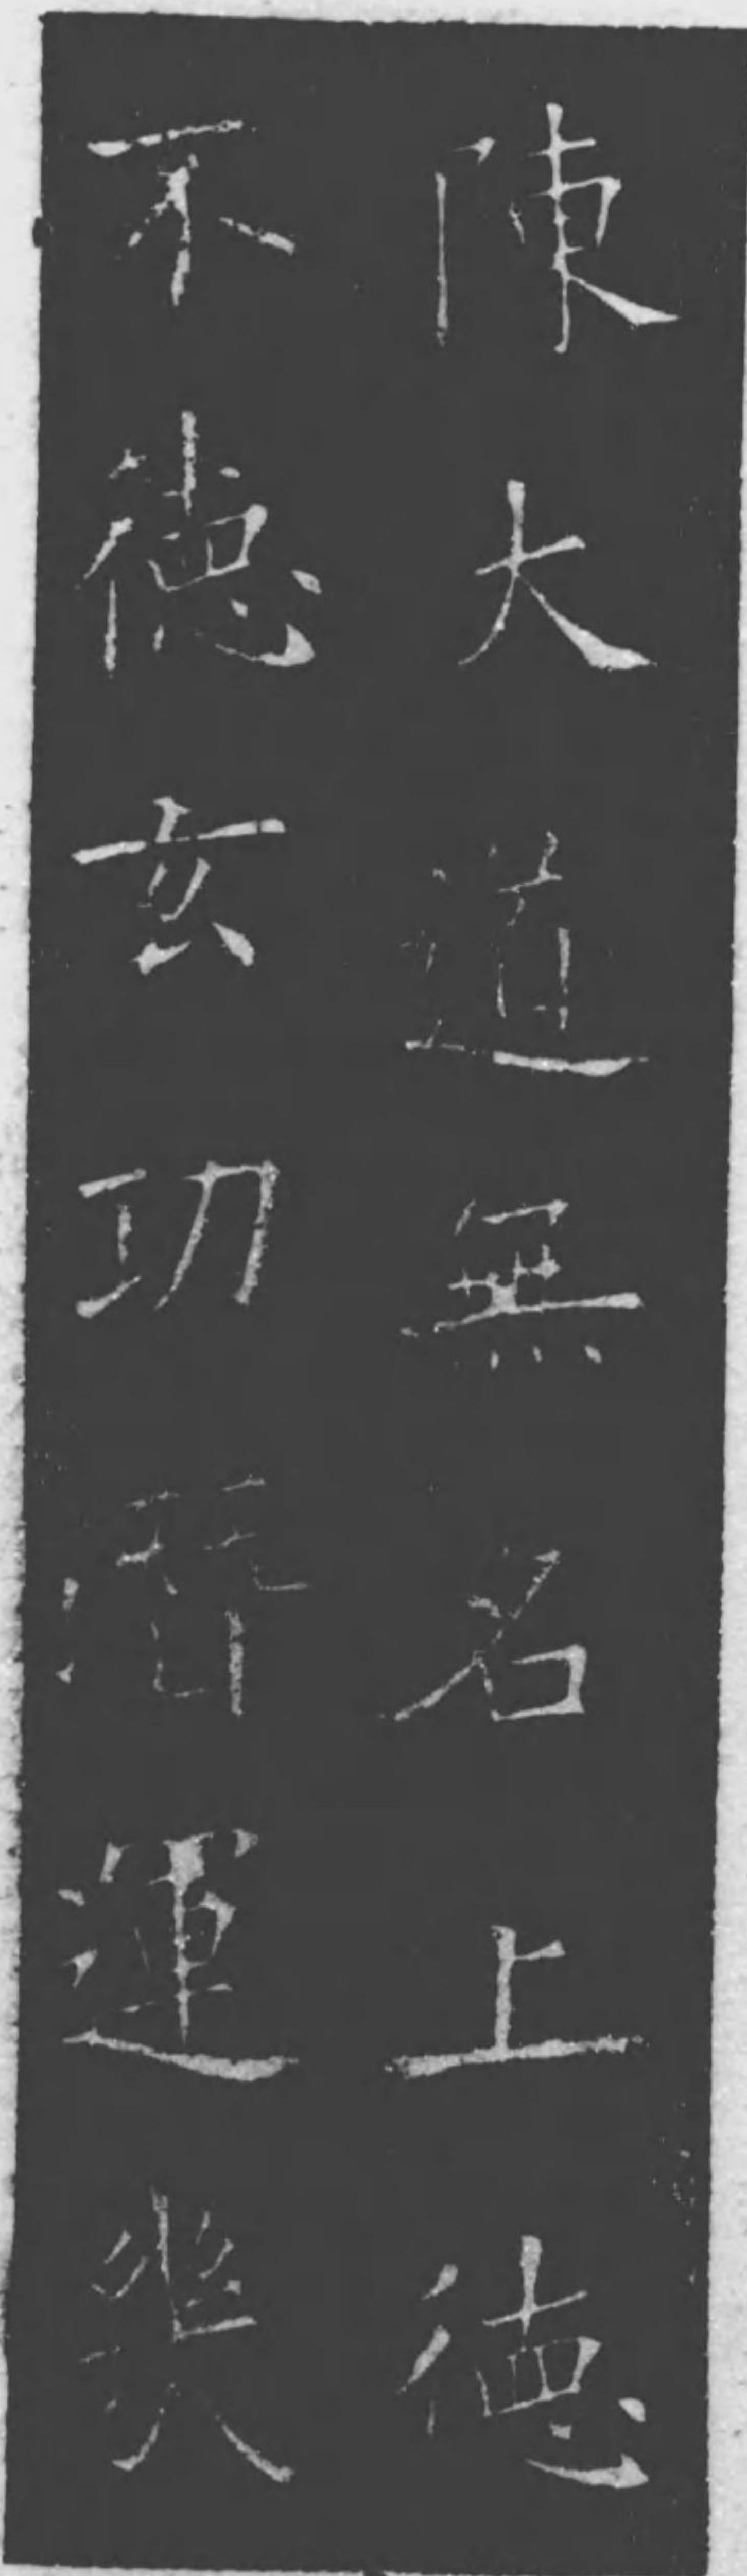 陳大道無名上德
不德玄功潛運幾